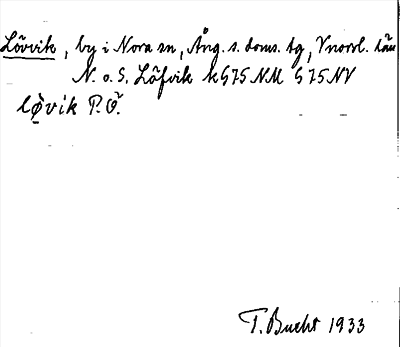 Lövvik, by i Nora sn, Ång. s. doms. tg, Vnorrl. län
N. o. S. Löfvik k G75 NM G 75 NV
lø̀vik P.Ö.
T. Bucht 1933